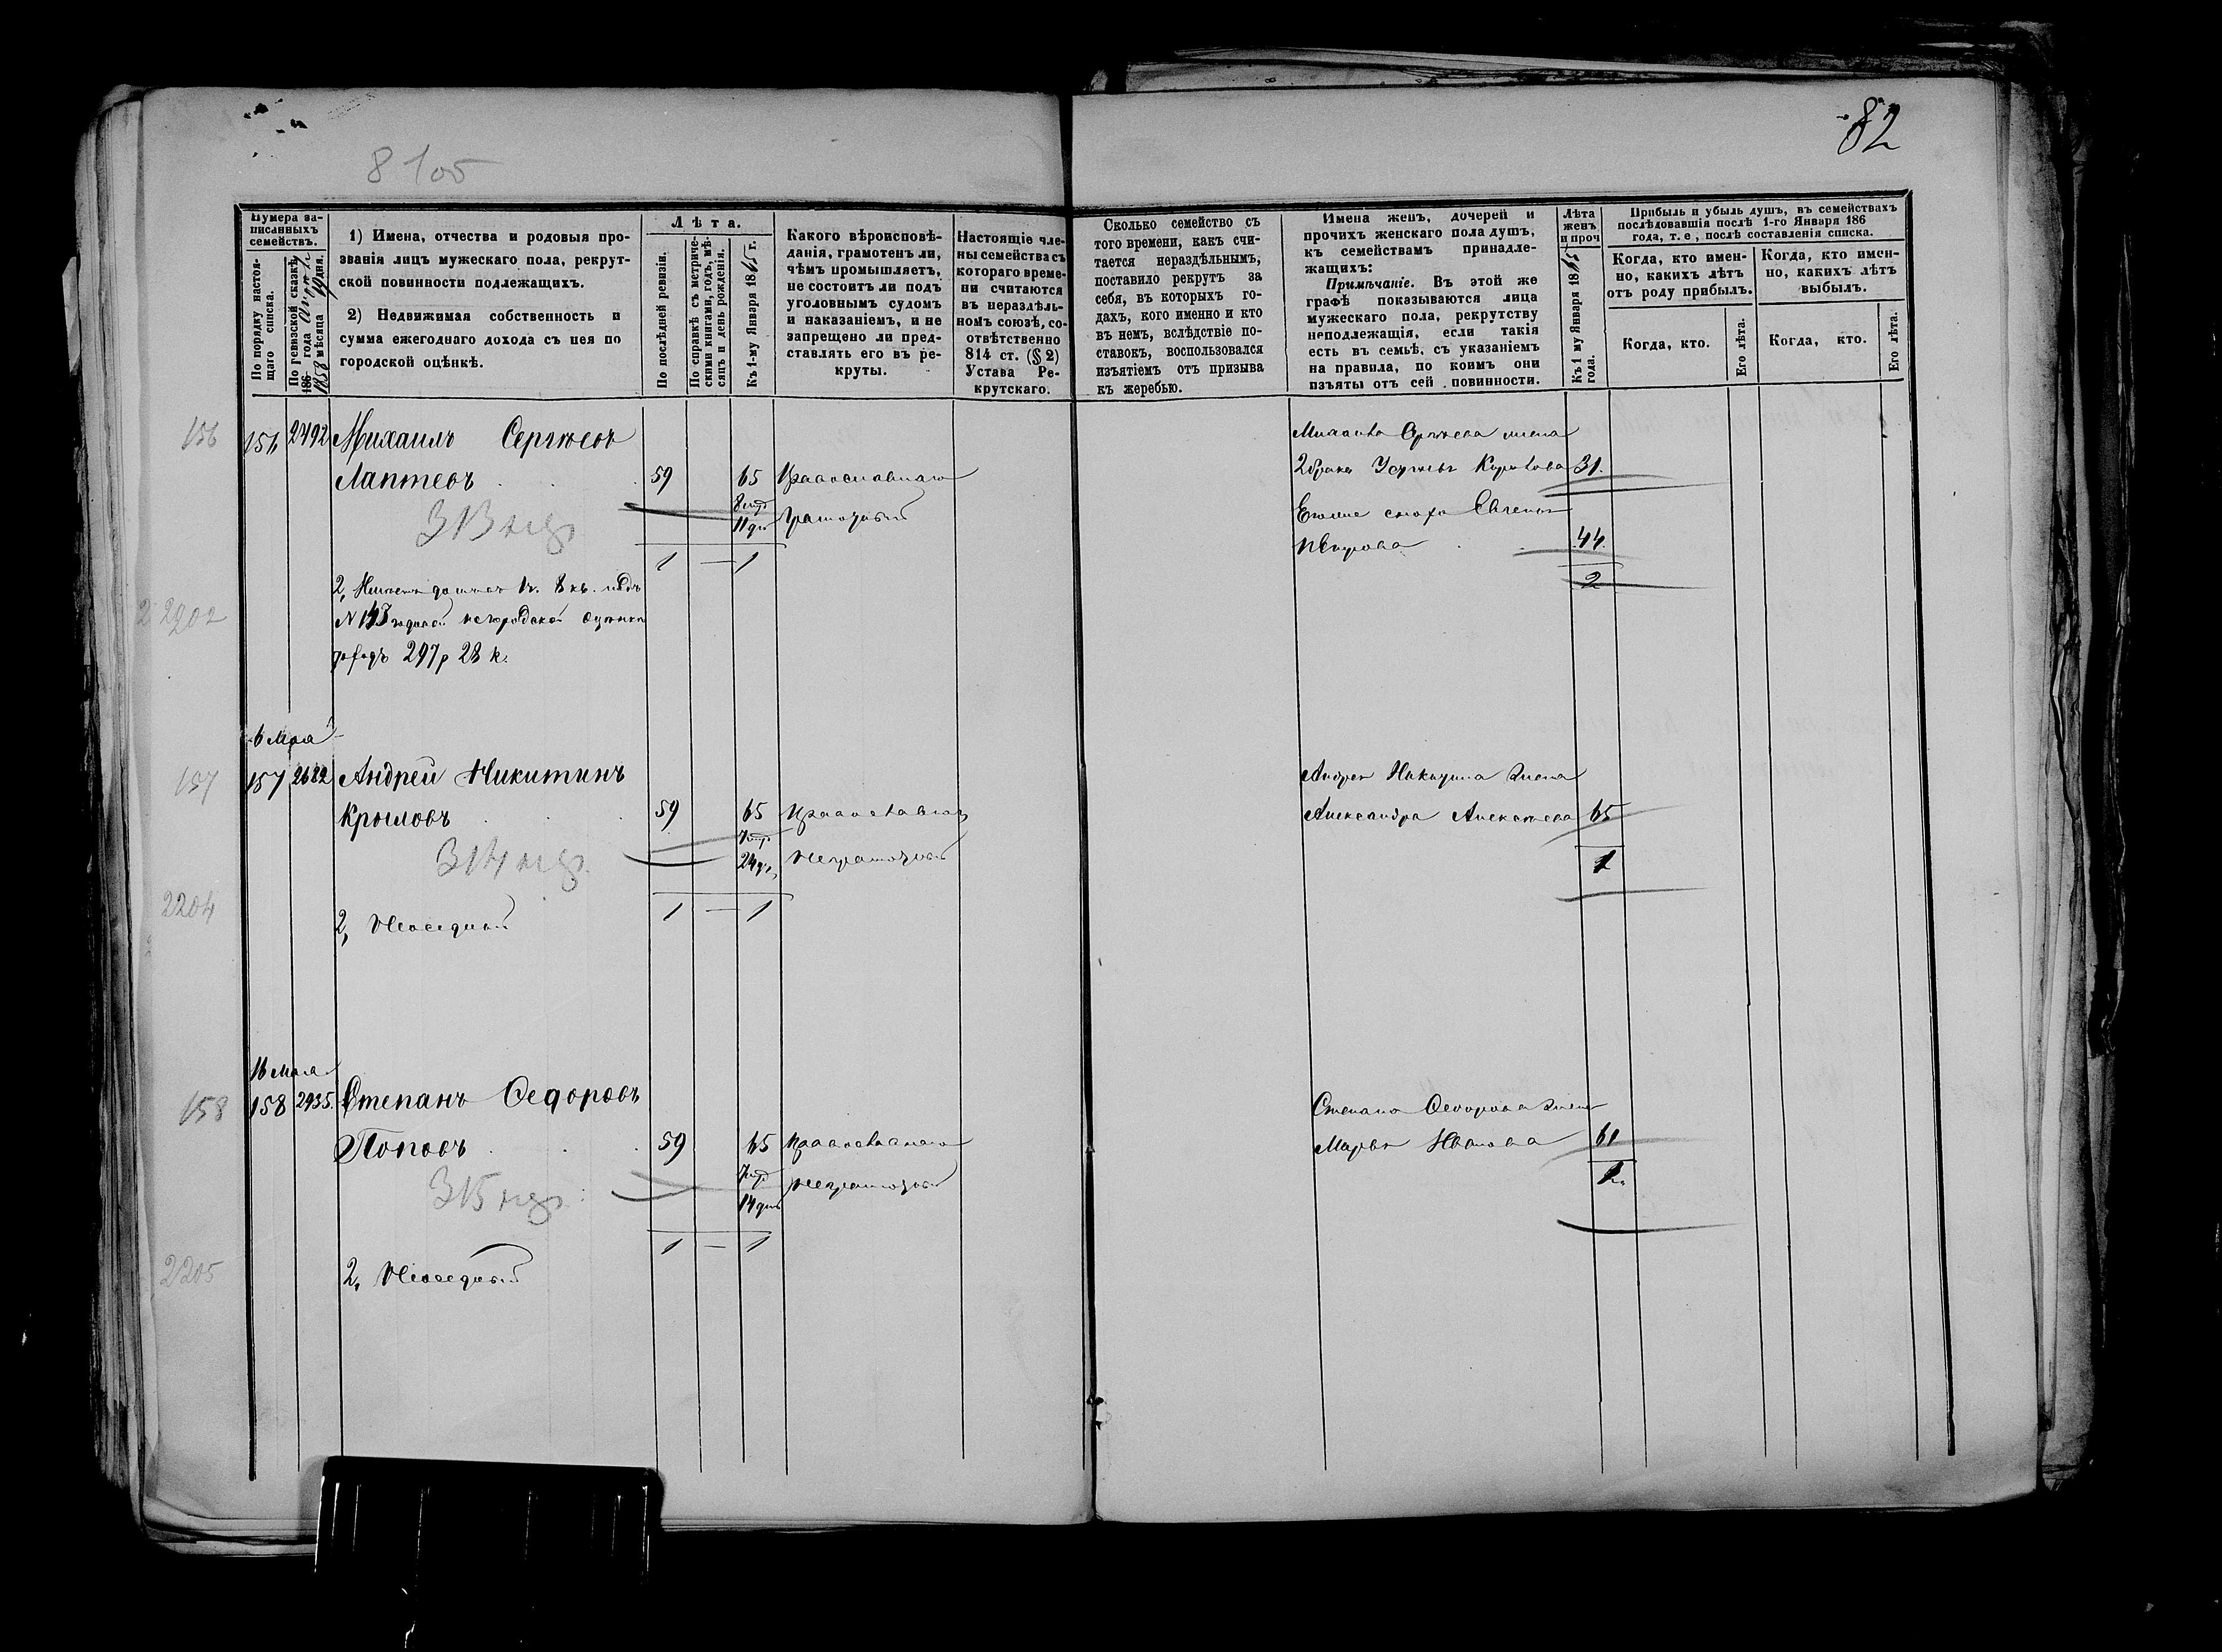 82
8105
Нумера за-
писанныхъ
семействъ.
По порядку настоя-
щаго списка.
По ревизской сказкѣ
186 года
1858 мѣсяца 19 дня.
1) Имена, отчества и родовыя про-
званія лицъ мужескаго пола, рекрут-
ской повинности подлежащихъ.
2) Недвижимая собственность и
сумма ежегоднаго дохода съ нея по
городской оцѣнкѣ.
Лѣта.
По послѣдней ревизіи.
По справкѣ съ метриче-
скими книгами, годъ, мѣ-
сяцъ и день рожденія.
Къ 1-му Января 1865 г.
Какого вѣроисповѣ-
данія, грамотенъ ли,
чѣмъ промышляетъ,
не состоитъ ли подъ
уголовнымъ судомъ
и наказаніемъ, и не
запрещено ли пред-
ставлять его въ ре-
круты.
Настоящіе чле-
ны семейства съ
котораго време-
ни считаются
въ нераздѣль-
номъ союзѣ, со-
отвѣтственно
814 ст. (§ 2)
Устава Ре-
крутскаго.
Сколько семейство съ
того времени, какъ счи-
тается нераздѣльнымъ,
поставило рекрутъ за
себя, въ которыхъ го-
дахъ, кого именно и кто
въ немъ, вслѣдствіе по-
ставокъ, воспользовался
изъятіемъ отъ призыва
къ жеребью.
Имена женъ, дочерей и
прочихъ женскаго пола душъ,
къ семействамъ принадле-
жащихъ:
Примѣчаніе. Въ этой же
графѣ показываются лица
мужескаго пола, рекрутству
неподлежащія, если такія
есть въ семьѣ, съ указаніемъ
на правила, по коимъ они
изъяты отъ сей повинности.
Лѣта
женъ
и проч
Къ 1 му Января 1865
года.
Прибыль и убыль душъ, въ семействахъ
послѣдовавшія послѣ 1-го Января 186
года, т. е, послѣ составленія списка.
Когда, кто имен-
но, какихъ лѣтъ
отъ роду прибылъ.
Когда, кто имен-
но, какихъ лѣтъ
выбылъ.
Когда, кто.
Его лѣта.
Когда, кто.
Его лѣта.
156 156 2492 Михаилъ Сергѣевъ
Лаптевъ 59 65 Православнаго
11 дн Грамотный
313
1 — 1
2,
2202
297 р 28 к.
Сергѣева жена
2 брака 31.
44
2
6 Мая
157 157 2682 Андрей Никитинъ
Крыловъ 59 65 Православнаго
24 дн. неграмотный
314
1 — 1
2204
2, Неоседлый
Андрея Никитина жена
Александра Алексѣева 65
1
16 Мая
158 158 2935. Степанъ Ѳедоровъ
Поповъ 59 65 Православнаго
14 дн неграмотный
315
1 — 1
2205
2, Неоседлый
Степана Ѳедорова жена
Марья Иванова 61
1